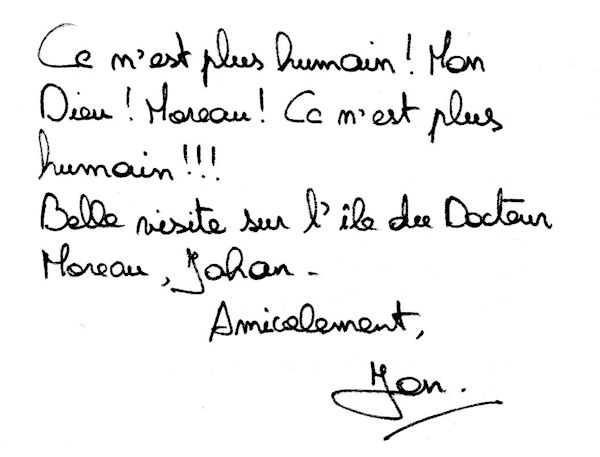 Ce n'est plus humain ! Mon
Dieu ! Moreau ! Ce n'est plus
humain !!!
Belle visite sur l'île du Docteur
Moreau, Johan.
Amicalement,
Jon.